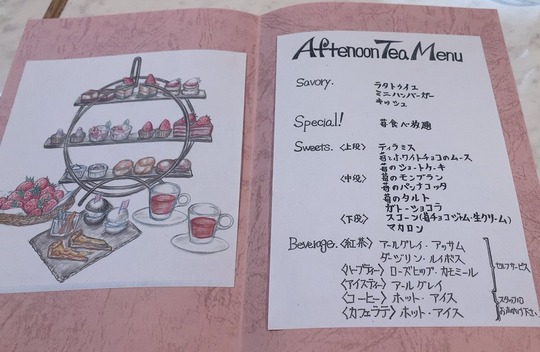 Aftenoon Tea Menu
Savory. ラタトゥイユ
ミニハンバーガー
キッシュ
Special! 苺食べ放題
Sweets. 〈上段〉 ティラミス
苺とホワイトチョコのムース
苺のショートケーキ
〈中段〉 苺のモンブラン
苺のパンナコッタ
苺のタルト
ガトーショコラ
〈下段〉 スコーン(苺チョコジャム・生クリーム)
マカロン
Beverage. 〈紅茶〉 アールグレイ・アッサム
ダージリン・ルイボス
〈ハーブティー〉 ローズヒップ・カモミール
〈アイスティー〉 アールグレイ
セルフサービス
〈コーヒー〉 ホット・アイス
〈カフェラテ〉 ホット・アイス
スタッフに
お声がけ下さい